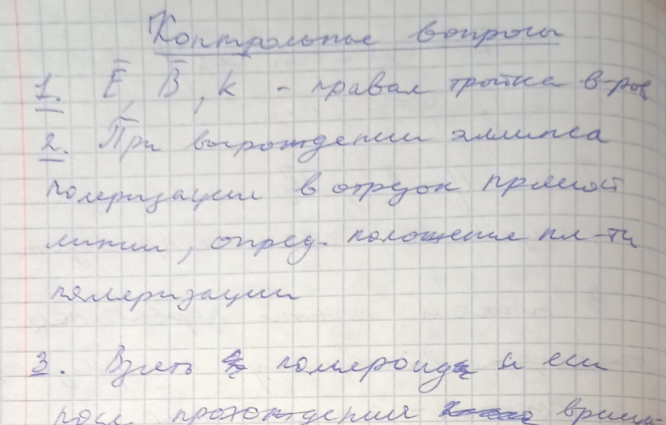 Контрольные вопросы
1. Ē, B̄, k̄ - правая тройка в-ров
2. При вырождении эллипса
поляризации в отрезок прямой
линии, опред. положение пл-ти
поляризации
3. Взять поляроид и если
после прохождения